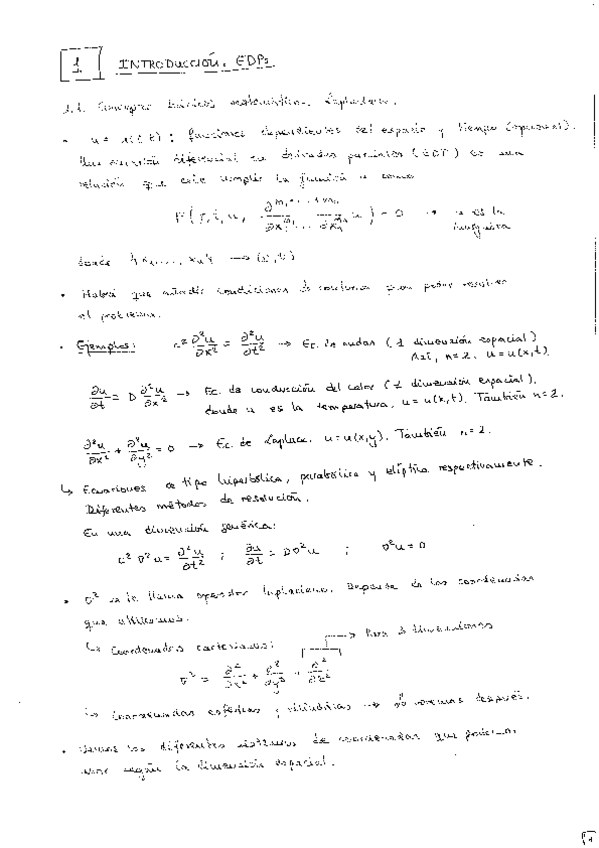 1 INTRODUCCIÓN. EDPs
1.1. Conceptos básicos matemáticos. Laplaciano.
• u = u(r̄,t): funciones dependientes del espacio y tiempo (opcional).
Una ecuación diferencial en derivadas parciales (EDP) es una
relación que debe cumplir la función u como
F(r̄,t,u, ∂^{m₁+...+mₙ}/∂x₁^{m₁}...∂xₙ^{mₙ} u) = 0 → u es la incógnita
donde x₁,...,xₙ → (r̄,t)
• Habrá que añadir condiciones de contorno para poder resolver
el problema.
• Ejemplos: c² ∂²u/∂x² = ∂²u/∂t² → Ec. de ondas (1 dimensión espacial)
Así, n=2. u=u(x,t).
∂u/∂t = D ∂²u/∂x² → Ec. de conducción del calor (1 dimensión espacial),
donde u es la temperatura, u=u(x,t). También n=2.
∂²u/∂x² + ∂²u/∂y² = 0 → Ec. de Laplace. u=u(x,y). También n=2.
↳ Ecuaciones de tipo hiperbólica, parabólica y elíptica respectivamente.
Diferentes métodos de resolución.
En una dimensión genérica:
c² ∇²u = ∂²u/∂t² ; ∂u/∂t = D∇²u ; ∇²u = 0
• ∇² se le llama operador laplaciano. Depende de las coordenadas
que utilicemos.
↳ Coordenadas cartesianas: → Para 3 dimensiones
∇² = ∂²/∂x² + ∂²/∂y² + ∂²/∂z²
↳ Coordenadas esféricas y cilíndricas → veremos después.
• Veamos los diferentes sistemas de coordenadas que podemos
usar según la dimensión espacial.
1